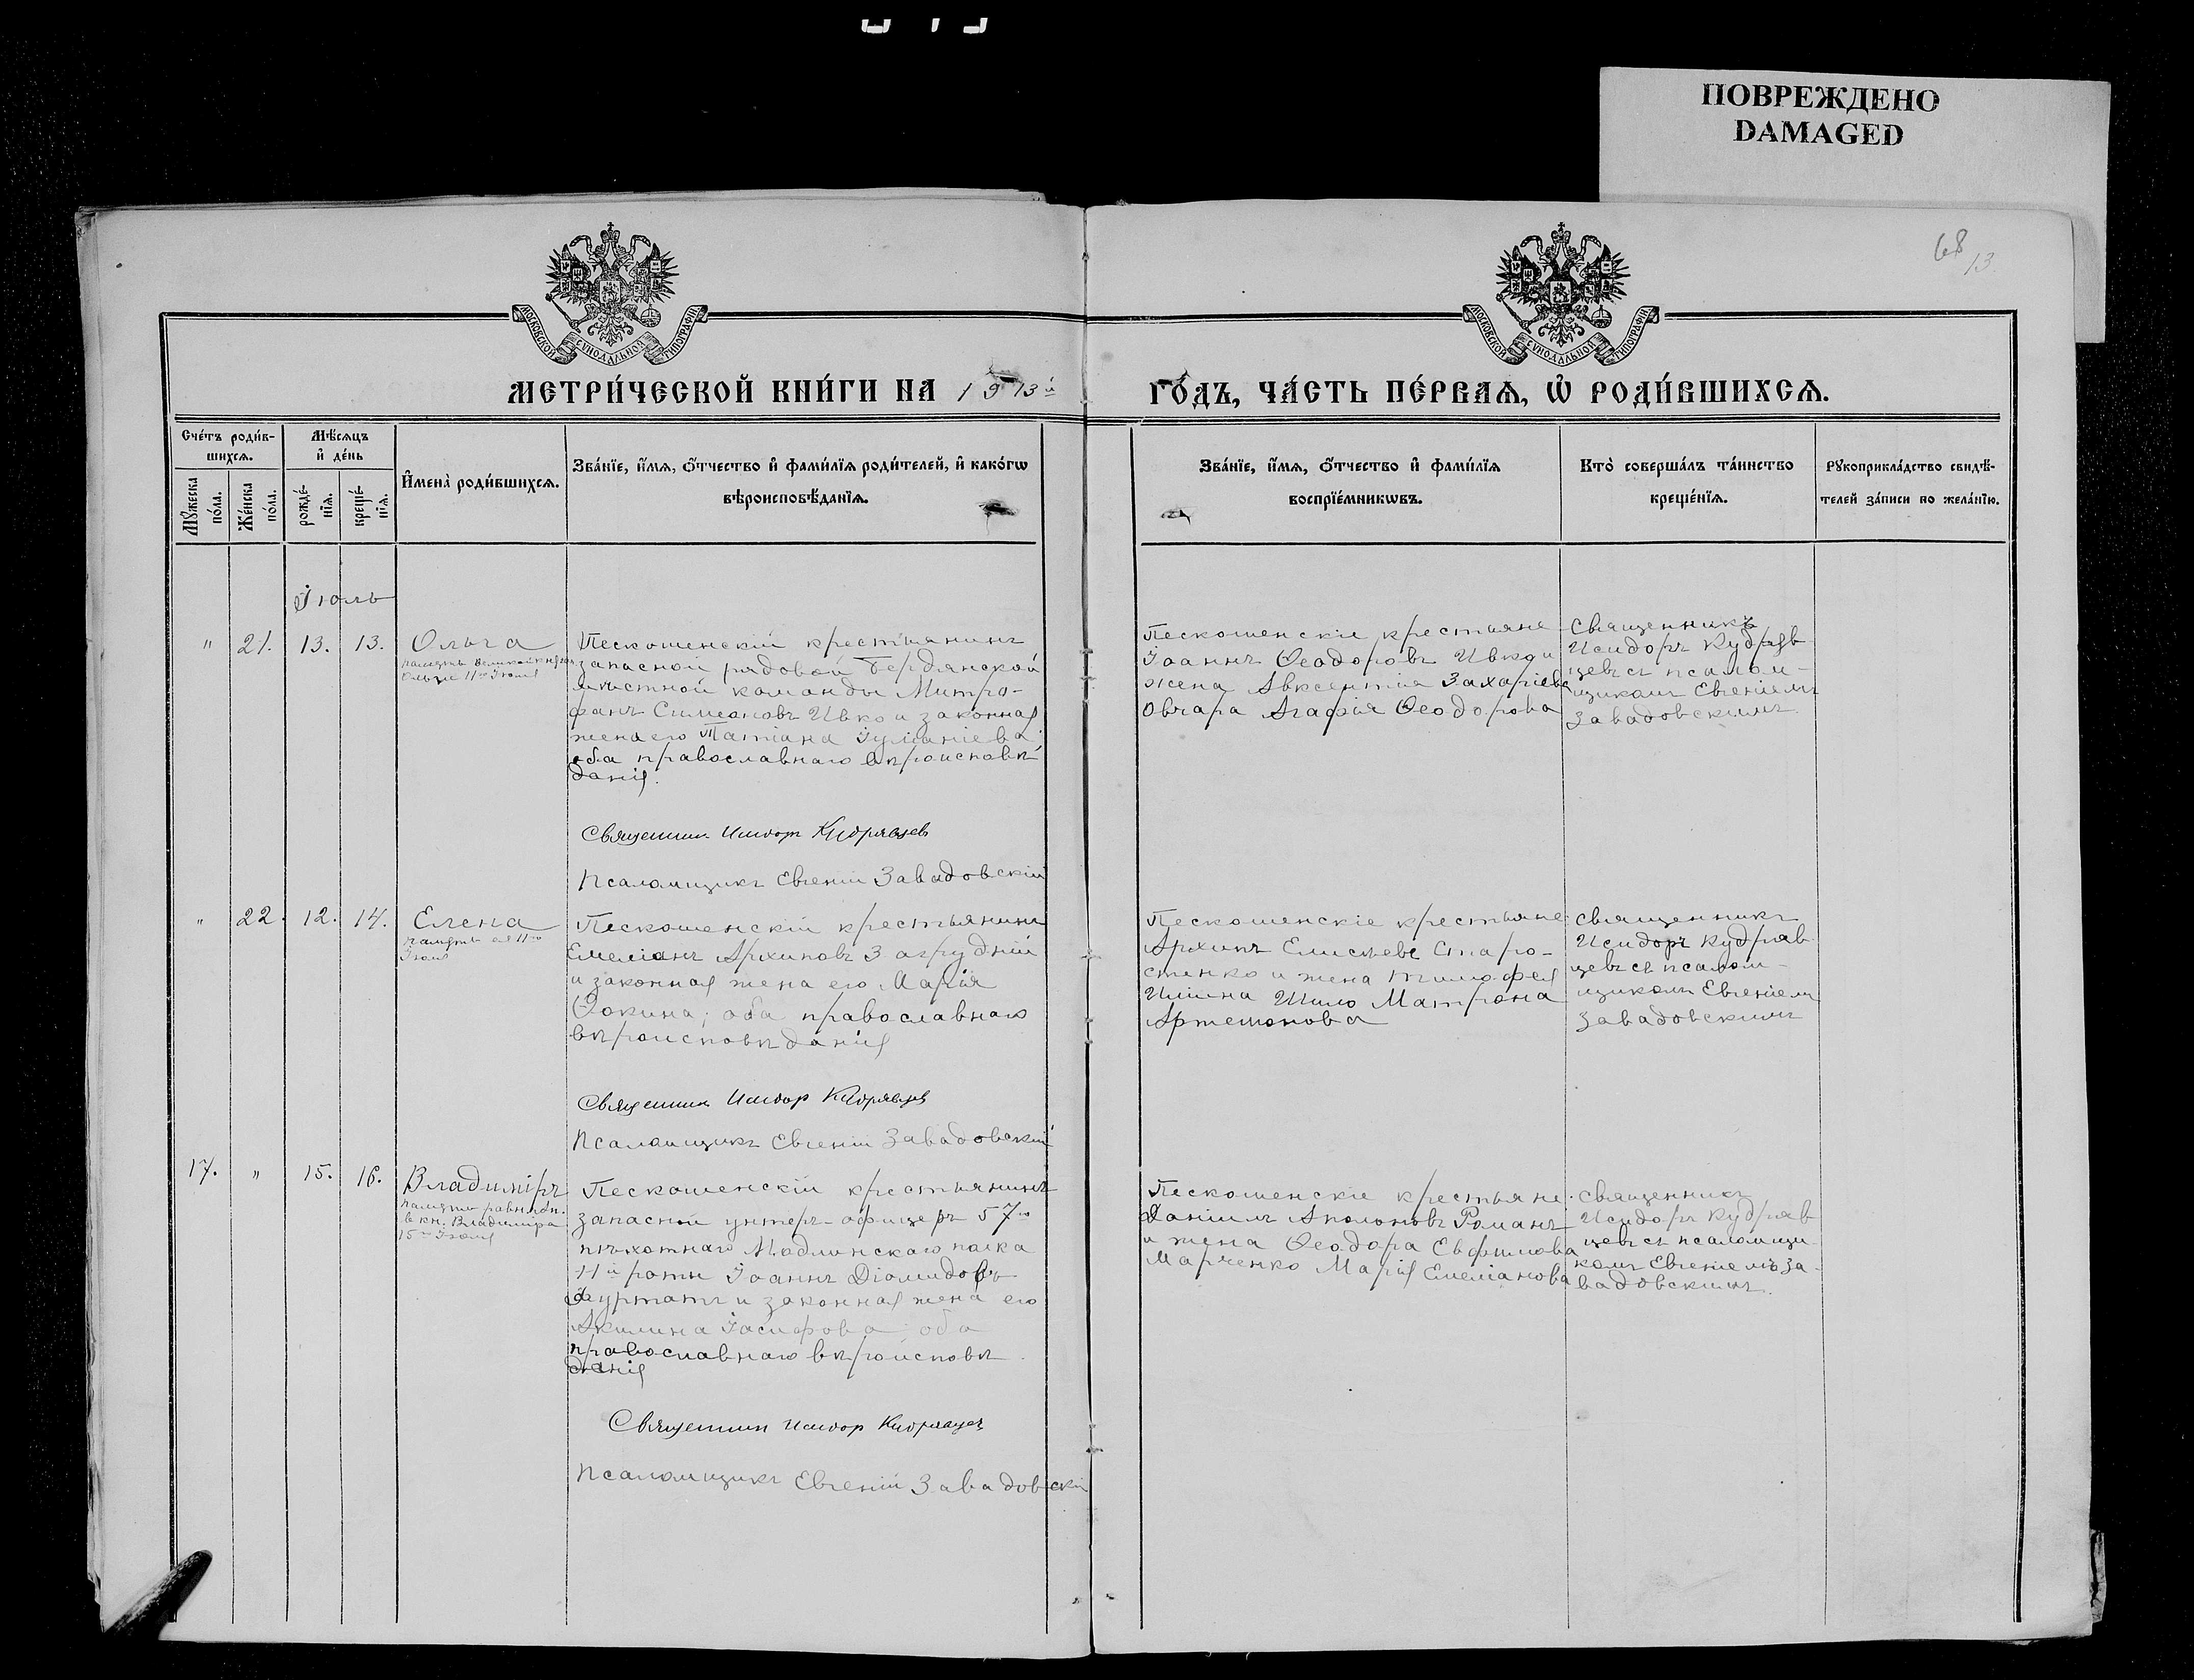 ПОВРЕЖДЕНО
DAMAGED
68
13
МОСКОВСКОЙ СѴНОДАЛЬНОЙ ТИПОГРАФІИ
МОСКОВСКОЙ СѴНОДАЛЬНОЙ ТИПОГРАФІИ
МЕТРИ́ЧЕСКОЙ КНИ́ГИ НА 1913й ГО́ДЪ, ЧА́СТЬ ПЕ́РВАѦ, Ѡ҆ РОДИ́ВШИХСѦ.
Сче́тъ роди́в-
шихсѧ.
Мꙋ́жеска
по́ла.
Же́нска
по́ла.
Мѣ́сѧцъ
и҆ де́нь
рожде́-
нїѧ.
креще́-
нїѧ.
И҆мена̀ роди́вшихсѧ.
Зва́нїе, и҆́мѧ, ѻ҆́тчество и҆ фами́лїѧ роди́телей, и҆ како́гѡ
вѣроисповѣ́данїѧ.
Зва́нїе, и҆́мѧ, ѻ҆́тчество и҆ фами́лїѧ
воспрїе́мникѡвъ.
Кто̀ соверша́лъ та́инство
креще́нїѧ.
Рꙋкоприкла́дство свидѣ́-
телей за́писи по жела́нїю.
Іюль
" 21. 13. 13. Ольга
память великой княг.
Ольги 11го Іюля
Пескошенскій крестьянинъ
запасной рядовой Бердянской
мѣстной команды Митро-
фанъ Симеоновъ Ивко и законная
жена его Татіана Іуліаніева
оба православнаго вѣроисповѣ
данія.
Священник Исидор Кудрявцев
Псаломщикъ Евгеній Завадовскій
Пескошенскіе крестьяне
Іоаннъ Ѳеодоровъ Ивко и
жена Авксентія Захаріева
Овчара Агафія Ѳеодорова
Священникъ
Исидоръ Кудряв
цевъ съ псалом-
щикомъ Евгеніемъ
Завадовскимъ
" 22. 12. 14. Елена
память ея 11го
Іюля
Пескошенскій крестьянинъ
Емеліанъ Архиповъ Загрудній
и законная жена его Марія
Фокина; оба православнаго
вѣроисповѣданія
Священник Исидор Кудрявцев
Псаломщикъ Евгеній Завадовскій
Пескошенскіе крестьяне
Архипъ Елисѣевъ Старо-
стенко и жена Тимофея
Шило Матрона
Артемонова
Священникъ
Исидоръ Кудряв
цевъ съ псалом-
щикомъ Евгеніемъ
Завадовскимъ
17. " 15. 16. Владиміръ
память равноап.
в. кн. Владиміра
15го Іюля
Пескошенскій крестьянинъ
запасной унтеръ-офицеръ 57го
пѣхотнаго Модлинскаго полка
11й роты Іоаннъ Діомидовъ
и законная жена его
Акилина Іосифова оба
православнаго вѣроисповѣ
данія
Священник Исидор Кудрявцев
Псаломщикъ Евгеній Завадовскій
Пескошенскіе крестьяне
Даніилъ Аполоновъ Романъ
и жена Ѳеодора Евфимова
Марченко Марія Емеліанова
Священникъ
Исидоръ Кудряв
цевъ съ псаломщи
комъ Евгеніемъ За-
вадовскимъ.